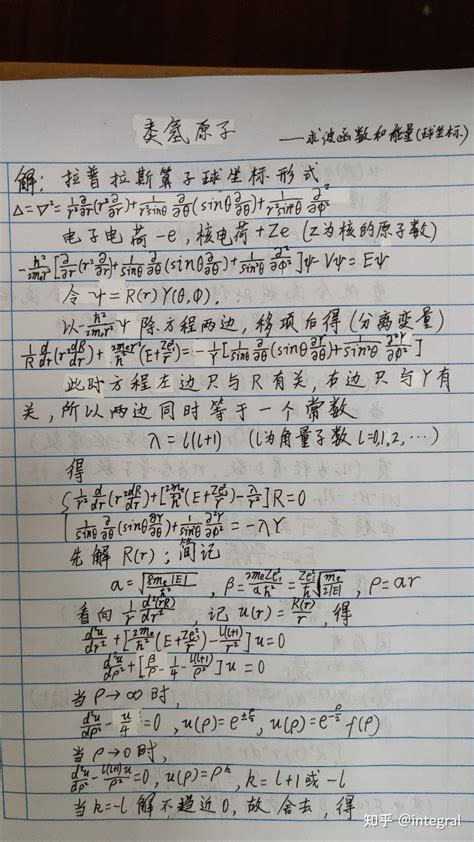 类氢原子 ——求波函数和能量(球坐标)
解: 拉普拉斯算子球坐标形式
Δ=∇²=1/r² ∂/∂r(r²∂/∂r)+1/(r²sinθ) ∂/∂θ(sinθ∂/∂θ)+1/(r²sin²θ) ∂²/∂φ²
电子电荷-e, 核电荷+Ze (Z为核的原子数)
-ħ²/(2mₑr²)[∂/∂r(r²∂/∂r)+1/sinθ ∂/∂θ(sinθ∂/∂θ)+1/sin²θ ∂²/∂φ²]ψ-Vψ=Eψ
令 ψ=R(r)Y(θ,φ).
以-ħ²/(2mₑr²)ψ 除方程两边, 移项后得(分离变量)
1/R d/dr(r²dR/dr)+2mₑr²/ħ²(E+Zeₛ²/r)=-1/Y[1/sinθ ∂/∂θ(sinθ∂Y/∂θ)+1/sin²θ ∂²Y/∂φ²]
此时方程左边只与R有关, 右边只与Y有
关, 所以两边同时等于一个常数
λ=l(l+1) (l为角量子数 l=0,1,2,…)
得
{1/r² d/dr(r²dR/dr)+[2mₑ/ħ²(E+Zeₛ²/r)-λ/r²]R=0
1/sinθ ∂/∂θ(sinθ∂Y/∂θ)+1/sin²θ ∂²Y/∂φ²=-λY
先解R(r); 简记
α=√(8mₑ|E|/ħ²), β=2mₑZeₛ²/(αħ²)=Zeₛ²/ħ √(mₑ/2|E|), ρ=αr
看向 1/r d²(rR)/dr², 记 u(r)=R(r)/r, 得
d²u/dr²+[2mₑ/ħ²(E+Zeₛ²/r)-l(l+1)/r²]u=0
d²u/dρ²+[β/ρ-1/4-l(l+1)/ρ²]u=0
当ρ→∞时,
d²u/dρ²-u/4=0, u(ρ)=e^(±ρ/2), u(ρ)=e^(-ρ/2)f(ρ)
当ρ→0时,
d²u/dρ²-l(l+1)u/ρ²=0, u(ρ)=ρᵏ, k=l+1或-l
当k=-l解不趋近0, 故舍去, 得
知乎 @integral